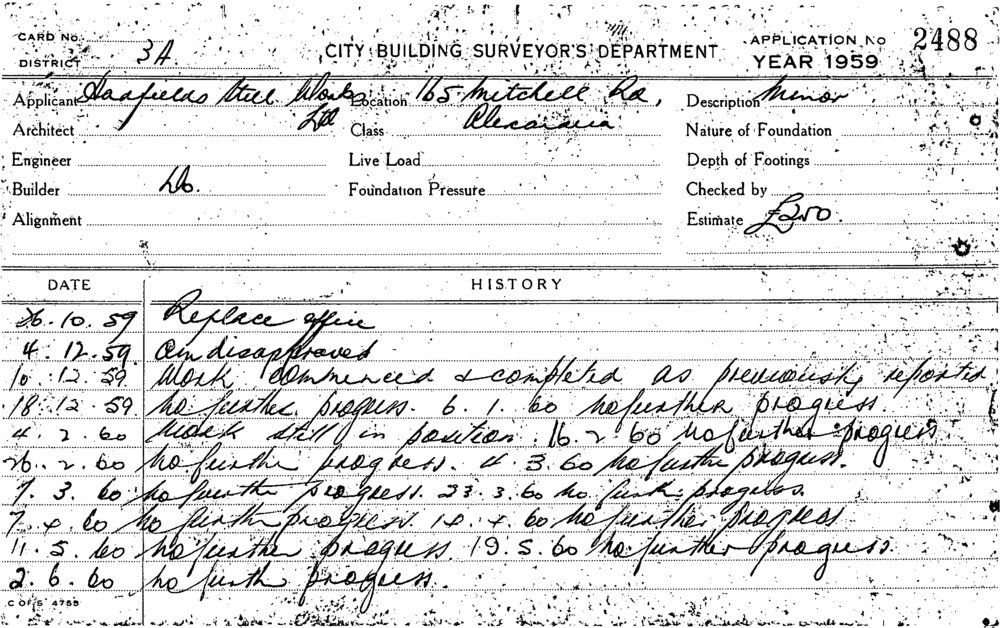 CARD No.
DISTRICT 3A.
CITY BUILDING SURVEYOR'S DEPARTMENT
APPLICATION No 2488
YEAR 1959
Applicant Hadfields Steel Works Ltd
Location 165 Mitchell Rd, Alexandria
Description Minor
Architect
Class
Nature of Foundation
Engineer
Live Load
Depth of Footings
Builder Do.
Foundation Pressure
Checked by
Alignment
Estimate £250.
DATE HISTORY
26.10.59 Replace office
4.12.59 disapproved
10.12.59 Work commenced & completed as previously reported
18.12.59 No further progress. 6.1.60 No further progress.
4.2.60 Work still in position. 16.2.60 No further progress
26.2.60 No further progress. 4.3.60 No further progress.
7.3.60 No further progress. 23.3.60 No furth progress.
7.4.60 No further progress. 14.4.60 No further progress
11.5.60 No further progress. 19.5.60 No further progress.
2.6.60 No furth progress.
C OF S 4755